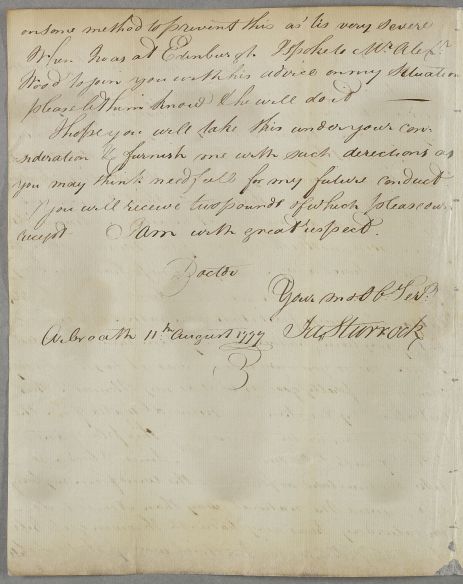 on some method to prevent this as tis very severe
When I was at Edinburgh I spoke to Mr. Alexr.
Wood to join you with his advice on my Situation
please let him know & he will do it —
I hope you will take this under your con-
sideration & furnish me with such directions as
you may think needfull for my future conduct
You will receive two pounds of which please own
receipt I am with great respect.
Doctor
Your most Obt. Sert.
Arbroath 11th August 1777 Jas Sturrock